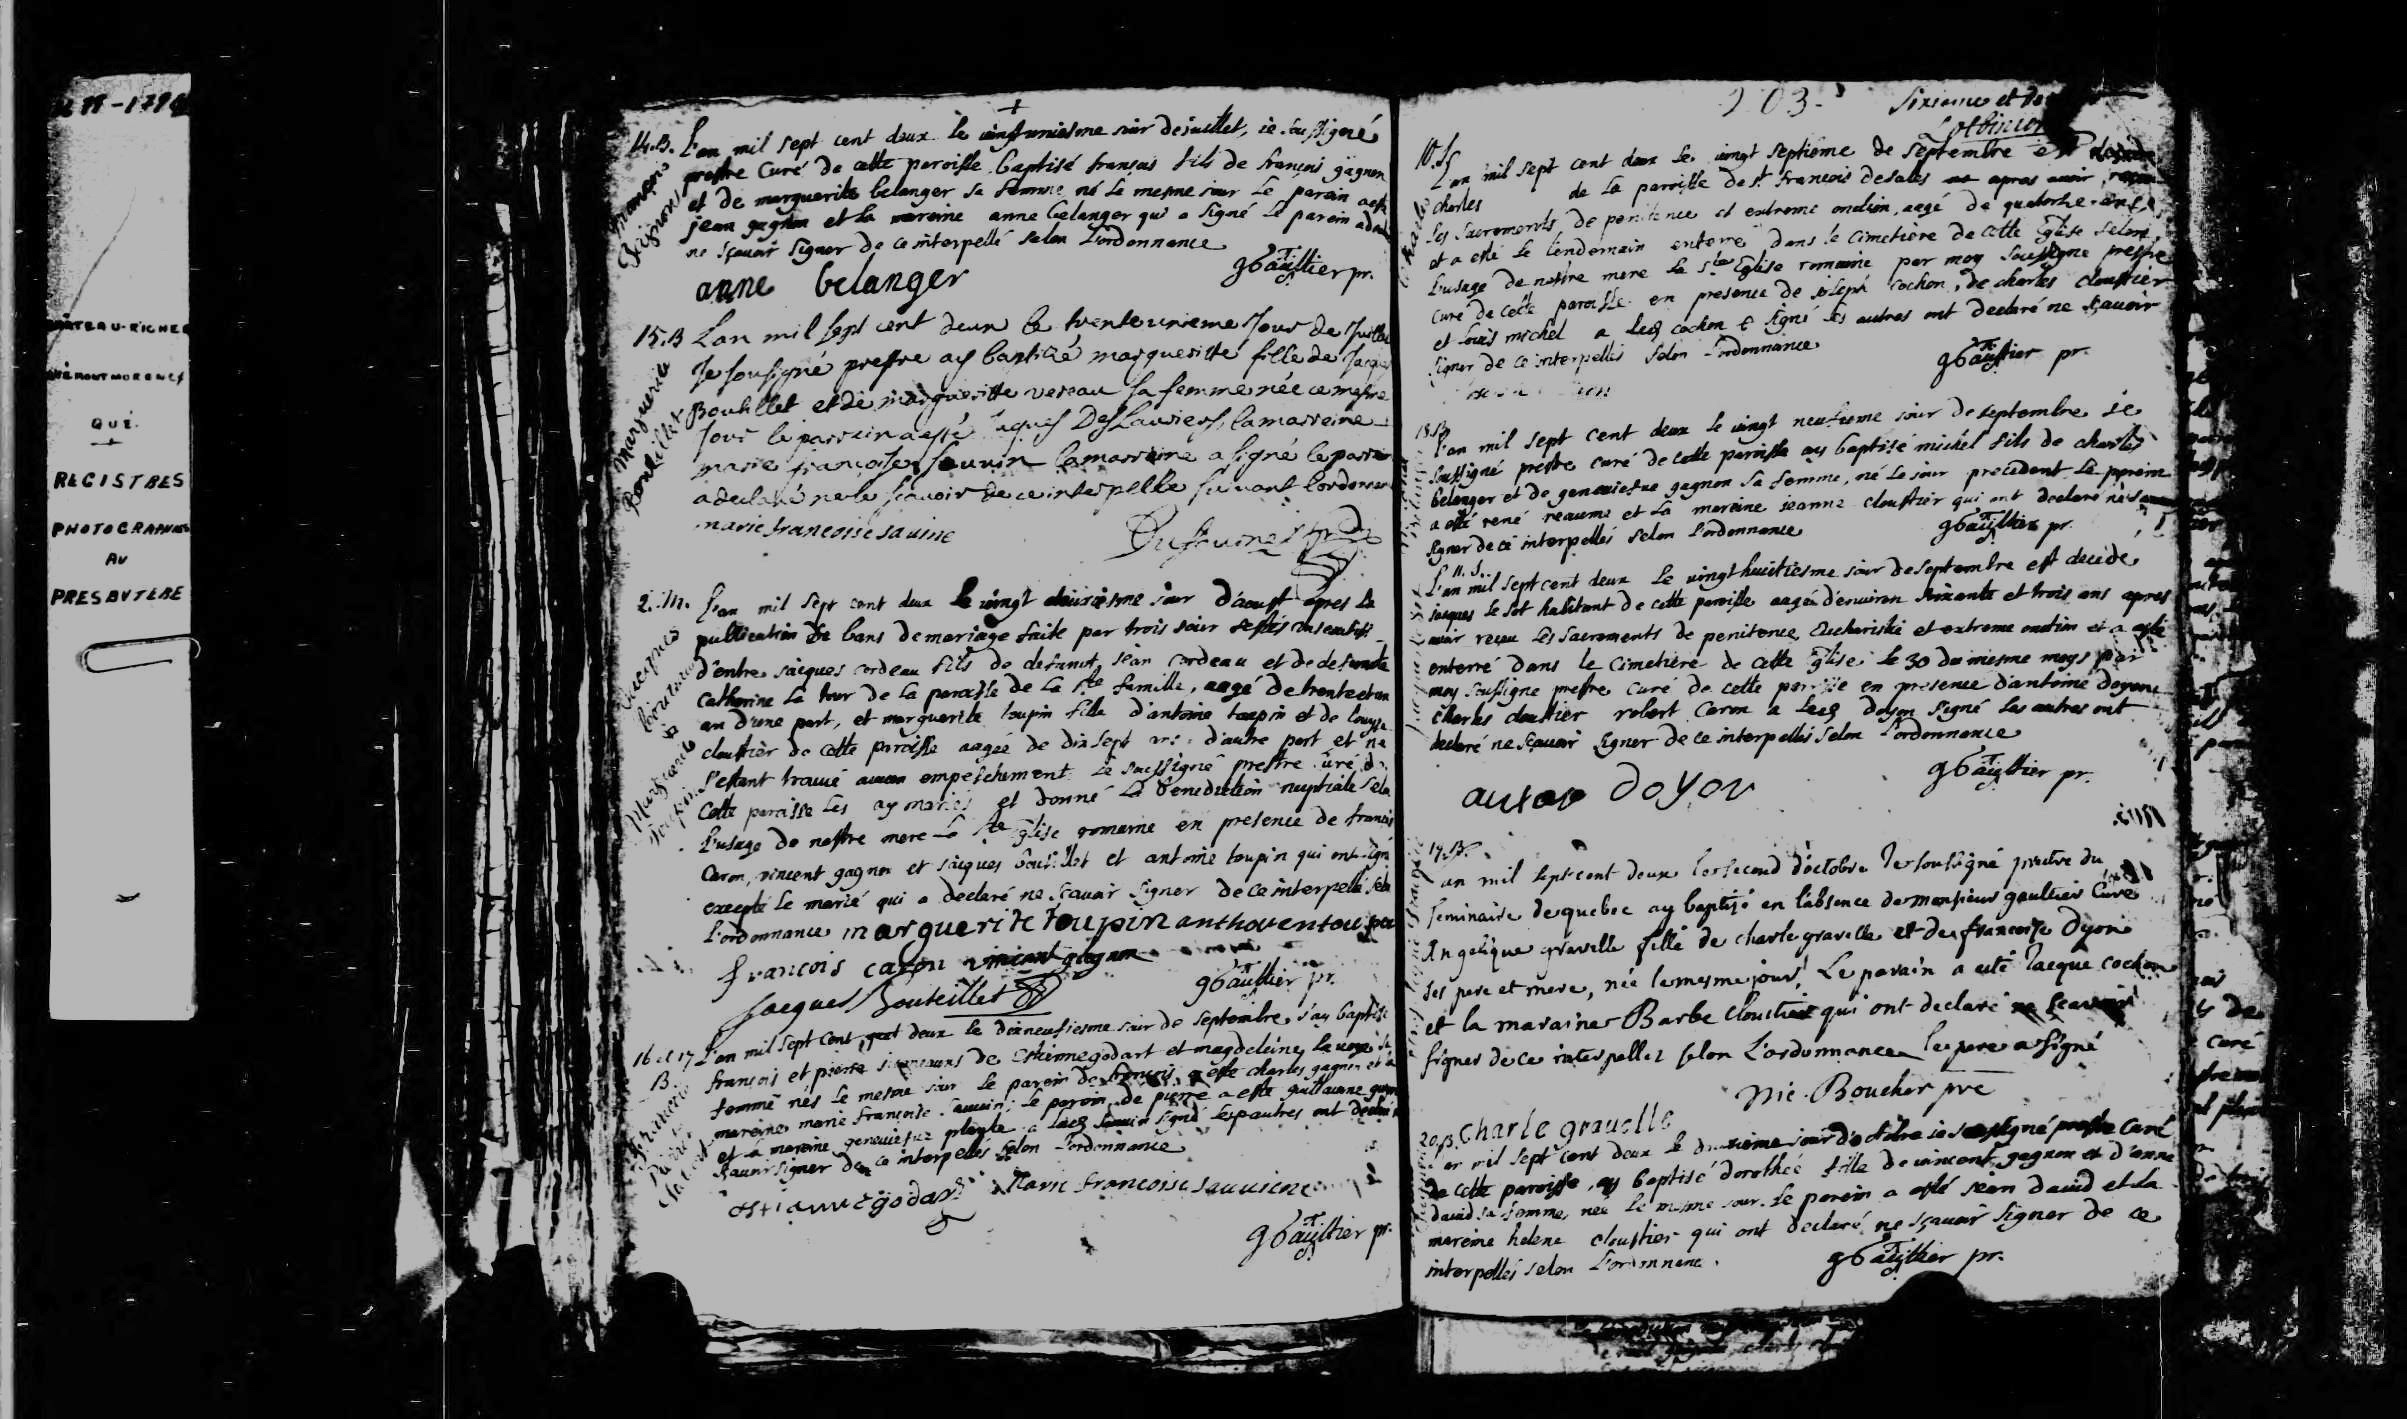 CHATEAU-RICHER
QUÉ.
REGISTRES
PHOTOGRAPHIÉS
AU
PRESBYTERE
14.B. L'an mil sept cent deux le vingt uniesme iour de iuillet, ie soussigné
prestre Curé de cette paroisse baptisé francois fils de francois gagnon
et de marguerite belanger sa femme né le mesme iour le parein a esté
jean gagnon et la mareine anne belanger qui a signé le parein a declaré
ne sçauoir signer de ce interpellé selon l'ordonnance
anne belanger
gGaultier pr.
François Gagnon
15.B L'an mil sept cent deux le trente unieme Jour de Juillet
Je sousigné prestre ay baptizé margueritte fille de Jacques
Boutillet et de margueritte vereau sa femme née ce mesme
Jour le parrein a esté Jaques DesLauriers, la marreine
marie françoise sauvin la marreine a signé le parrein
a declaré ne le scavoir de ce interpellé suivant l'ordonnance
marie francoise sauine
Marguerite Boutillet
2.M. L'an mil sept cent deux le vingt deuxiesme iour d'aoust apres la
publication de bans de mariage faite par trois iour festes consecutifs
d'entre iacques cordeau fils de defunct jean cordeau et de defuncte
Catherine la tour de la paroisse de la Ste famille, aagé de trente et un
an d'une part, et marguerite toupin fille d'antoine toupin et de louyse
cloustier de cette paroisse aagée de dix sept ans d'autre part et ne
s'estant trouué aucun empeschement le soussigné prestre curé de
cette paroisse les ay mariés et donné la benediction nuptiale selon
l'usage de nostre mere la Ste Eglise romaine en presence de francois
Caron, vincent gagnon et iacques boutillet et antoine toupin qui ont signé
excepté le marié qui a declaré ne sçauoir signer de ce interpellé selon
l'ordonnance marguerite toupin anthoventoupin
francois caron vincent gagnon
Jacques Bouteillet
gGaultier pr.
16 et 17 L'an mil sept cent deux le dixneufiesme iour de septembre i'ay baptisé
B. francois et pierre iumeaux de Estienne godart et magdeleine
femme nés le mesme iour le parein de francois a esté charles gagnon et la
mareine marie francoise sauuin; le parein de pierre a esté guillaume gagnon
et la mareine geneuiefue plante a led sauuin signé les autres ont declaré
sçauoir signer de ce interpellés selon l'ordonnance
estiannegodard Marie francoise sauuiene
gGaultier pr.
103. Sixieme et
10.S. L'an mil sept cent deux le vingt septieme de septembre est
charles de la paroisse de st francois de sales apres auoir
les sacrements de penitence et extreme onction, aagé de quatorze ans
et a esté le lendemain enterré dans le cimetière de cette Eglise selon
l'usage de nostre mere la Ste Eglise romaine par moy soussigné prestre
curé de cette paroisse en presence de ioseph cochon, de charles cloustier
et louis michel a led cochon signé les autres ont declaré ne sçauoir
signer de ce interpellés selon l'ordonnance
gGaultier pr.
18.B L'an mil sept cent deux le vingt neufieme iour de septembre ie
soussigné prestre curé de cette paroisse ay baptisé michel fils de charles
belanger et de geneuiefue gagnon sa femme, né le iour precedent le parein
a esté rené reaume et la mareine ieanne cloustier qui ont declaré ne sçauoir
signer de ce interpellés selon l'ordonnance gGaultier pr.
11.S.
L'an mil sept cent deux le vingt huitiesme iour de septembre est decedé
iacques le sot habitant de cette paroisse aagé d'enuiron soixante et trois ans apres
auoir receu les sacrements de penitence, Eucharistie et extreme onction et a esté
enterré dans le cimetiere de cette Eglise le 30 du mesme moys par
moy soussigné prestre curé de cette paroisse en presence d'antoine doyon
charles cloustier robert Caron a led doyon signé les autres ont
declaré ne sçauoir signer de ce interpellés selon l'ordonnance
gGaultier pr.
antoe doyon
19.B.
L'an mil sept cent deux le second d'octobre Je soussigné prêtre du
seminaire de quebec ay baptisé en l'absence de monsieur gaultier Curé
Angelique gravelle fille de charle gravelle et de francoise Dyon
ses pere et mere, née le mesme jour, Le parain a esté Jacque cochon
et la maraine Barbe Cloutier qui ont declaré ne scavoir
signer de ce interpellez selon L'ordonnance le pere a signé
Nic. Boucher pre
20.B. Charle grauelle
L'an mil sept cent deux le iour d'octobre ie soussigné prestre Curé
de cette paroisse, ay baptisé dorothée fille de vincent gagnon et d'anne
dauid sa femme, née le mesme iour. le parein a esté jean dauid et la
mareine helene cloustier qui ont declaré ne sçauoir signer de ce
interpellés selon l'ordonnance.
gGaultier pr.